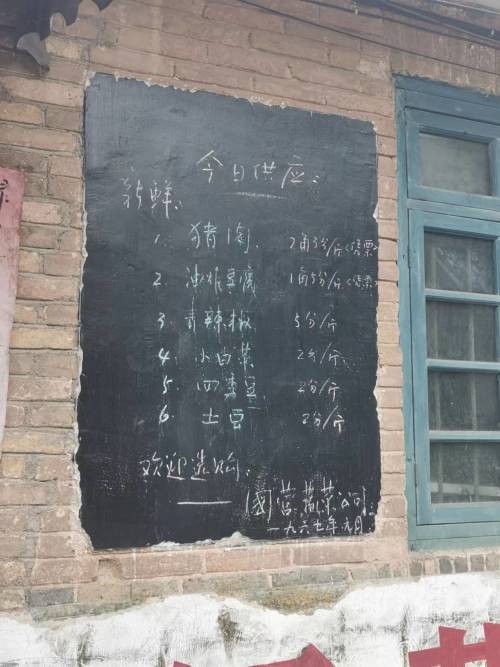 今日供应:
新鲜:
1. 猪肉. 7角3分/斤(凭票)
2. 油炸豆腐 1角5分/斤(凭票)
3. 青辣椒 5分/斤
4. 小白菜 2分/斤
5. 四季豆 2分/斤
6. 土豆 2分/斤
欢迎选购:
—— 国营蔬菜公司
一九六七年元月.